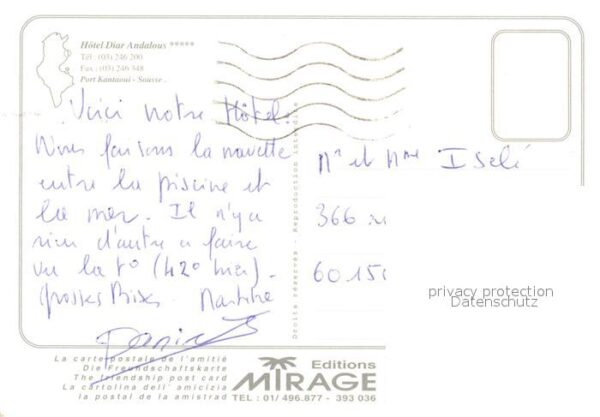 Hôtel Diar Andalous *****
Tél : (03) 246 200
Fax : (03) 246 348
Port Kantaoui - Sousse.
Voici notre Hôtel.
Nous faisons la navette
entre la piscine et
la mer. Il n'y a
rien d'autre a faire
vu la t° (42° mer).
Grosses Bises Martine
Droits réservés - Reproduction interdite
Mr et Mme Iselé
366
60150
privacy protection
Datenschutz
La carte postale de l'amitié
Die Freundschaftskarte
The friendship post card
La cartolina dell' amicizia
la postal de la amistrad
Editions
MIRAGE
TEL : 01/ 496.877 - 393 036